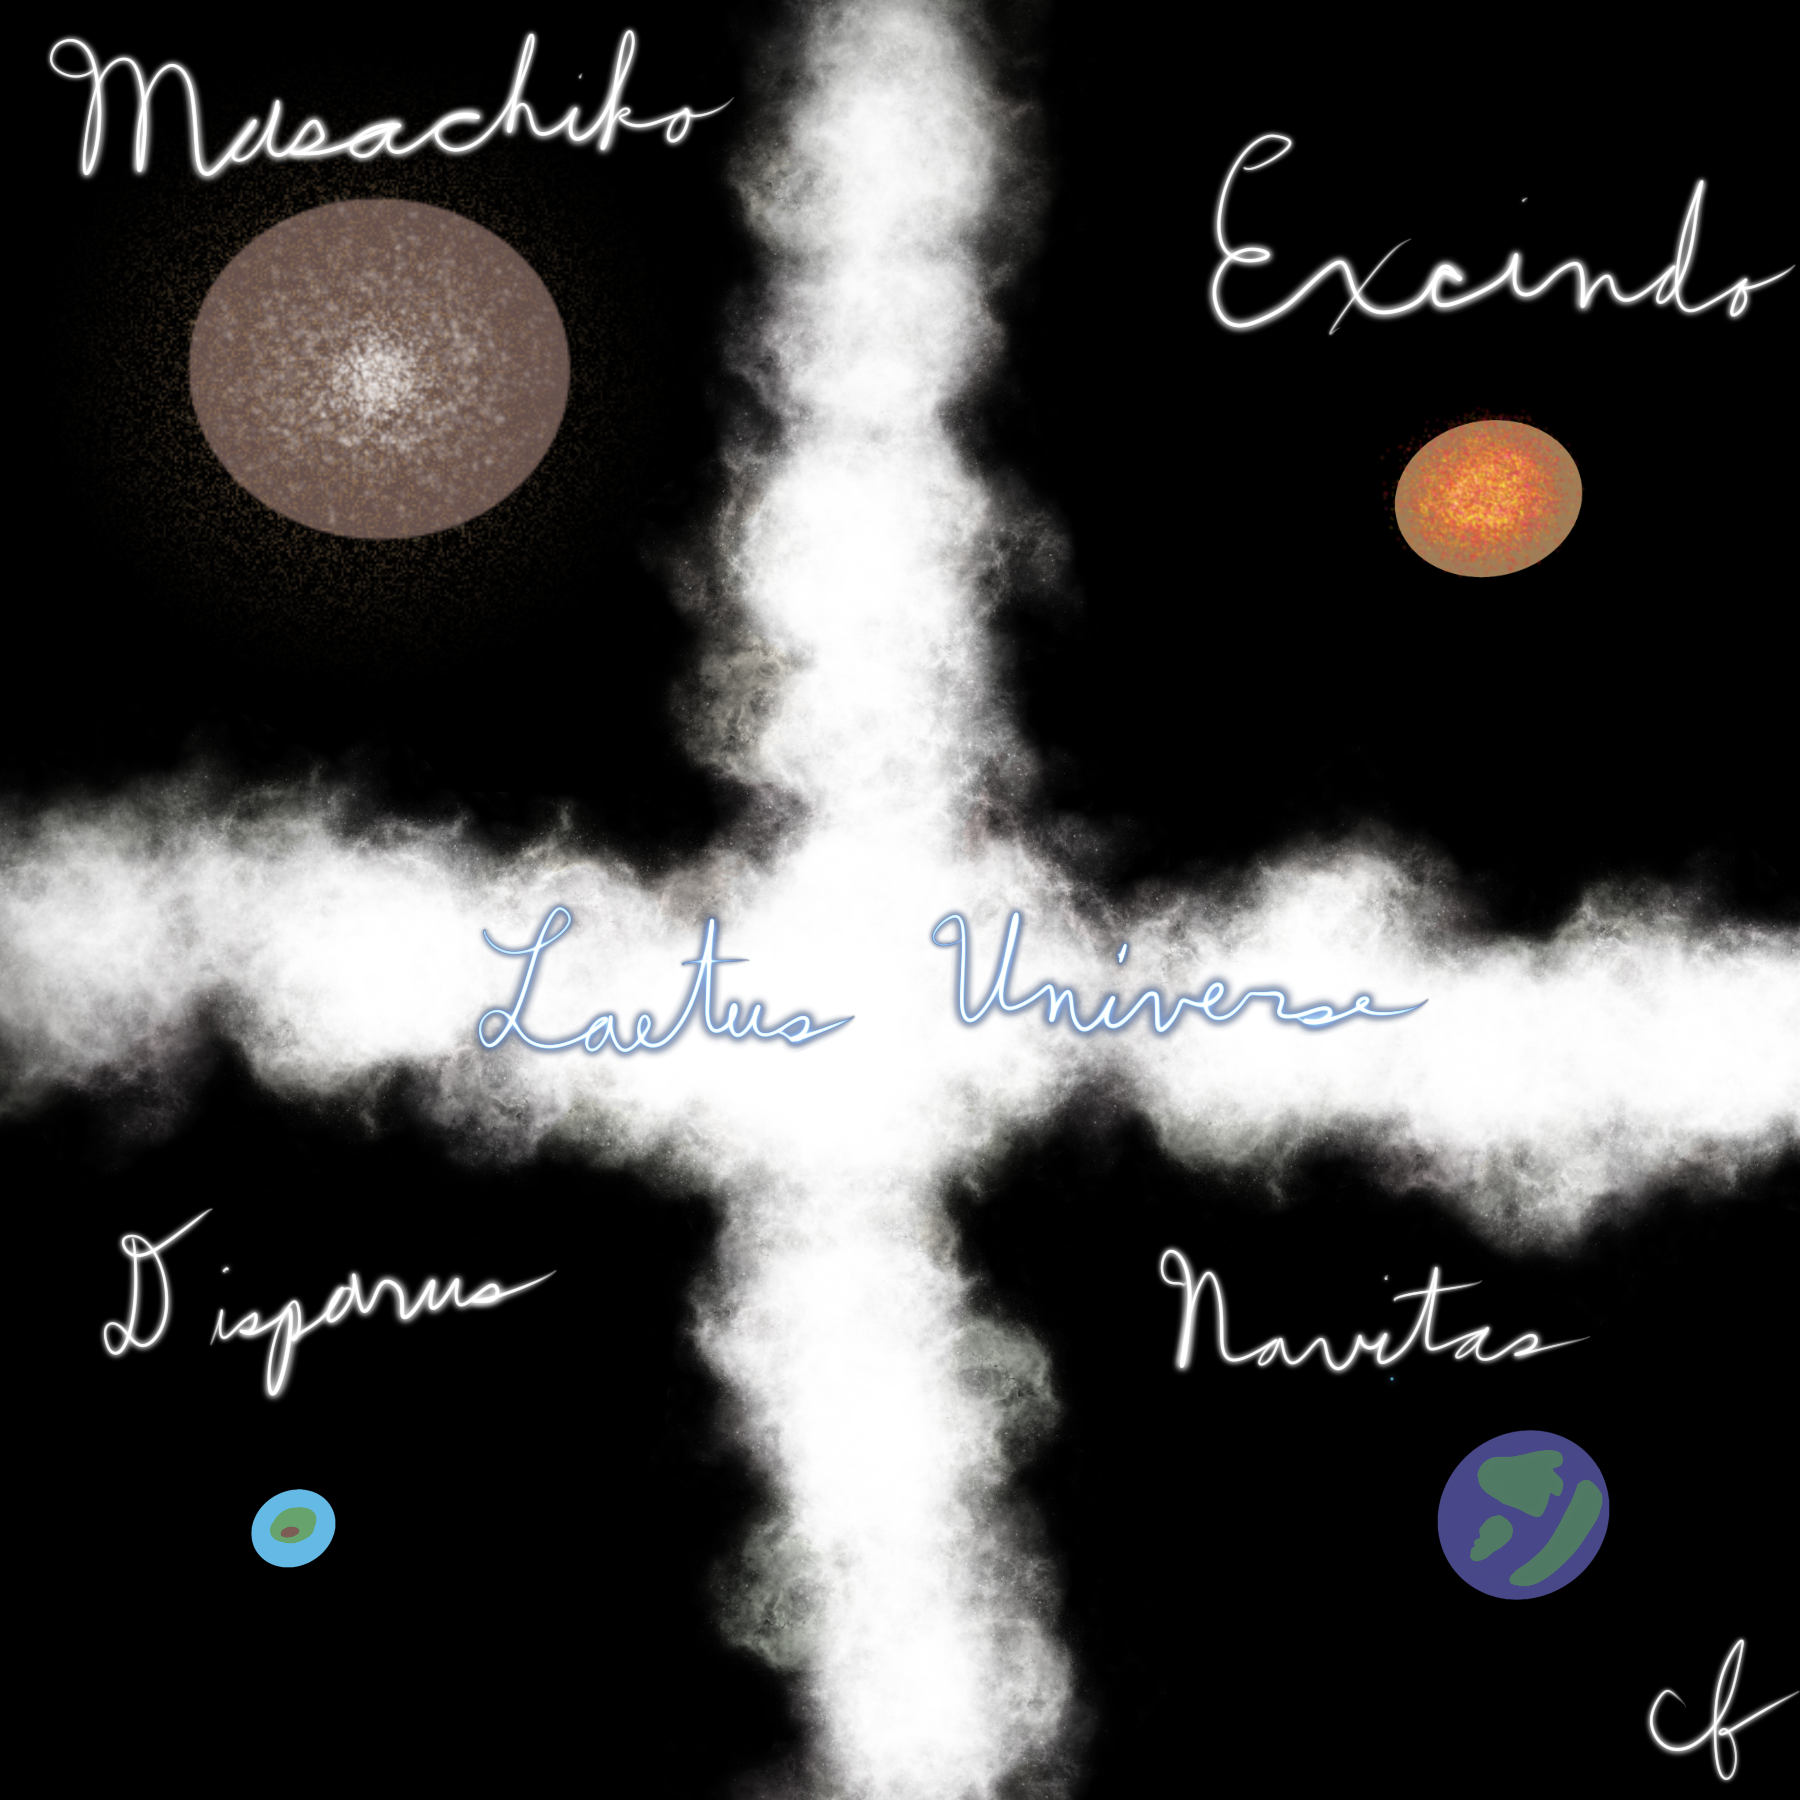 Masachiko
Excindo
Laetus Universe
Disparus
Navitas
cf